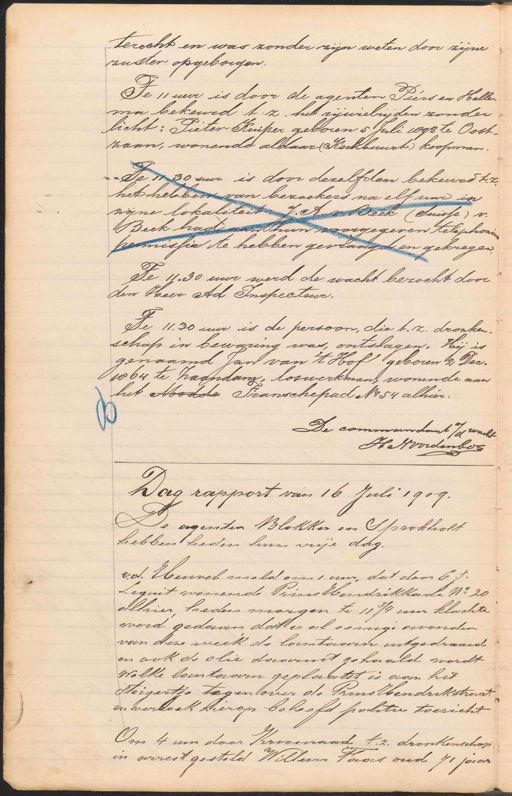 terecht en was zonder zijn weten door zijne
zuster opgeborgen.
Te 11 uur is door de agenten Piers en Helle-
ma bekeurd t.z. het rijwielrijden zonder
licht: Pieter Kuiper geboren 5 Juli 1892 te Oost-
zaan, wonende aldaar (Kerkbuurt) koopman.
Te 11.30 uur is door dezelfden bekeurd t.z.
het hebben van bezoekers na elf uur in
zijne lokaliteit J. A. v. Beek (Suisse) v.
Beek had voorgegeven telephonisch
permissie te hebben gevraagd en gekregen
Te 11.30 uur werd de wacht bezocht door
den Heer Ad. Inspecteur.
Te 11.30 uur is de persoon, die t.z. dronken-
schap in bewaring was, ontslagen. Hij is
genaamd Jan van 't Hof geboren 2 Dec.
1864 te Zaandam, loswerkman, wonende aan
het Transchepad No 54 alhier.
De commandant v/d wacht
Noordenbos
Dag rapport van 16 Juli 1909.
De agenten Blokker en Sprokholt
hebben heden hun vrije dag.
v.d. Heuvel meld om 1 uur, dat door G J.
wonende Prins Hendrikkade No 20
alhier, heden morgen te 11 3/4 uur klachte
word gedaan dat er al eenige avonden
van deze week de lantaarn uitgedraaid
en ook de olie daaruit gehaald wordt
Welke lantaarn geplaatst is aan het
steigertje tegenover de Prins Hendrikstraat
en verzoek hierop beleefd politie toezicht
Om 4 uur door Kroonraad t.z. dronkenschap
in arrest gesteld Willem oud 71 jaar